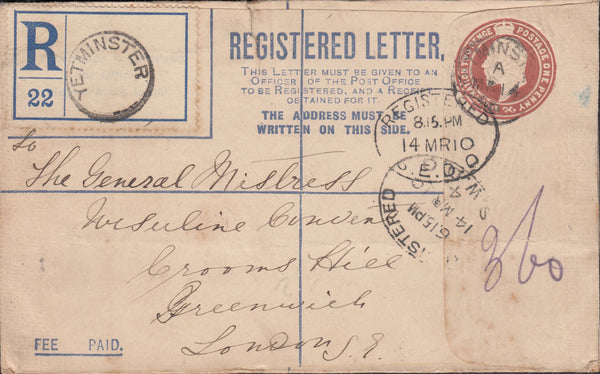 R
22
YETMINSTER
REGISTERED LETTER,
THIS LETTER MUST BE GIVEN TO AN
OFFICER OF THE POST OFFICE
TO BE REGISTERED, AND A RECEIPT
OBTAINED FOR IT.
THE ADDRESS MUST BE
WRITTEN ON THIS SIDE.
POSTAGE ONE PENNY
A
14
REGISTERED
8.15.PM
14 MR10
6.15PM
14 M
ISTERED
To
The General Mistress
Ursuline Conven
Crooms Hill
Greenwich
London S.E
360
FEE PAID.